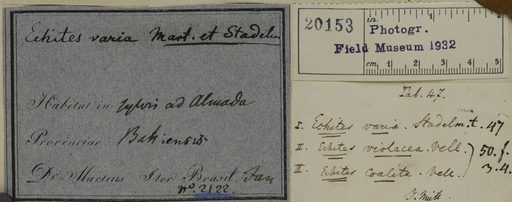 Echites varia Mart. et Stadelm
Habitat in sylvis ad Almada
Provinciae Bahiensis
De Martius Iter Brasil Jan
no. 2122.
20153
in.
Photogr.
Field Museum 1932
cm. 1 2 3 4 5
Tab. 47.
I. Echites varia. Stadelm. t. 47
II. Echites violacea. Vell. } 50. f.
III. Echites Coalita. Vell. } 3. 4.
J. Müll.